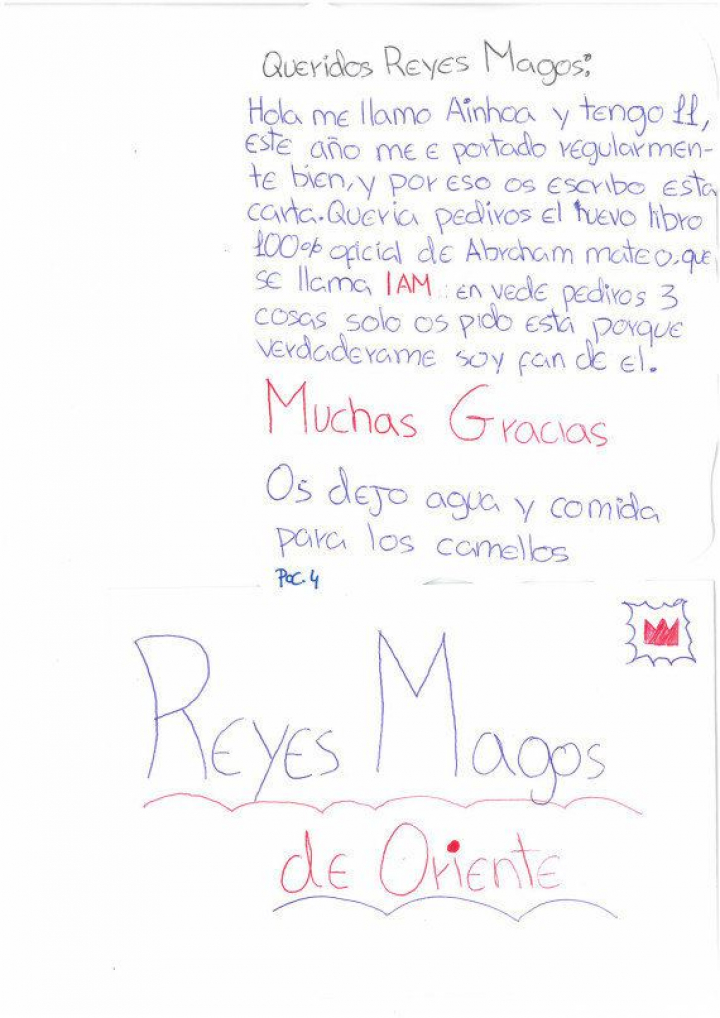 Queridos Reyes Magos:
Hola me llamo Ainhoa y tengo 11,
este año me e portado regularmen-
te bien, y por eso os escribo esta
carta. Queria pediros el nuevo libro
100% oficial de Abraham mateo, que
se llama I AM. en vede pediros 3
cosas solo os pido esta porque
verdaderame soy fan de el.
Muchas Gracias
Os dejo agua y comida
para los camellos
Pac. 4
Reyes Magos
de Oriente